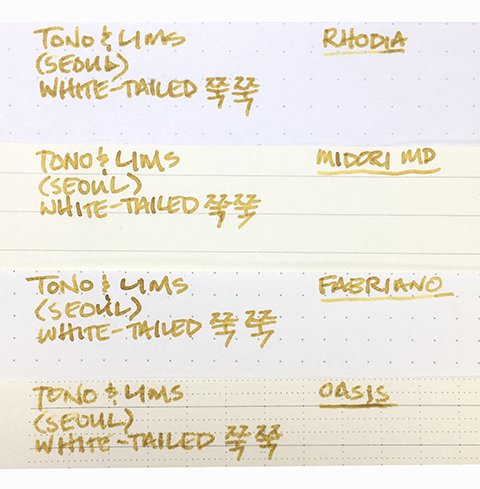 TONO & LIMS RHODIA
(SEOUL)
WHITE-TAILED 쭉쭉
TONO & LIMS MIDORI MD
(SEOUL)
WHITE-TAILED 쭉쭉
TONO & LIMS FABRIANO
(SEOUL)
WHITE-TAILED 쭉 쭉
TONO & LIMS OASIS
(SEOUL)
WHITE-TAILED 쭉 쭉